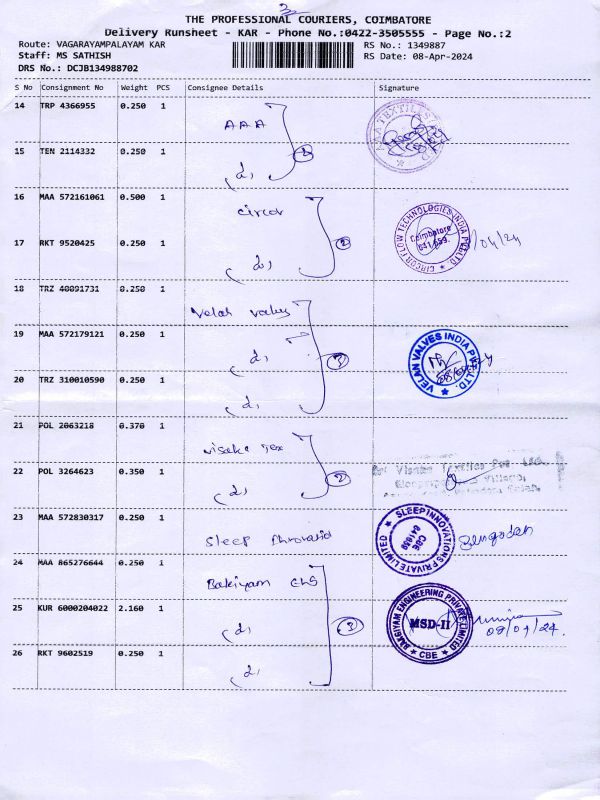 THE PROFESSIONAL COURIERS, COIMBATORE
Delivery Runsheet - KAR - Phone No.:0422-3505555 - Page No.:2
Route: VAGARAYAMPALAYAM KAR
RS No.: 1349887
Staff: MS SATHISH
RS Date: 08-Apr-2024
DRS No.: DCJB134988702
S No Consignment No Weight PCS Consignee Details Signature
14 TRP 4366955 0.250 1 AAA
15 TEN 2114332 0.250 1
16 MAA 572161061 0.500 1 circor
CIRCOR FLOW TECHNOLOGIES INDIA PVT LTD.
Coimbatore
641 659.
17 RKT 9520425 0.250 1
/04/24
18 TRZ 40091731 0.250 1 Velan valves
19 MAA 572179121 0.250 1
VELAN VALVES INDIA PVT. LTD.
20 TRZ 310010590 0.250 1
21 POL 2063218 0.370 1
22 POL 3264623 0.350 1
23 MAA 572830317 0.250 1 Sleep
SLEEP INNOVATIONS PRIVATE LIMITED
CBE
641659
24 MAA 865276644 0.250 1 Bakiyam
25 KUR 6000204022 2.160 1
BAKGIYAM ENGINEERING PRIVATE LIMITED
MSD-II
CBE
08/04/24.
26 RKT 9602519 0.250 1